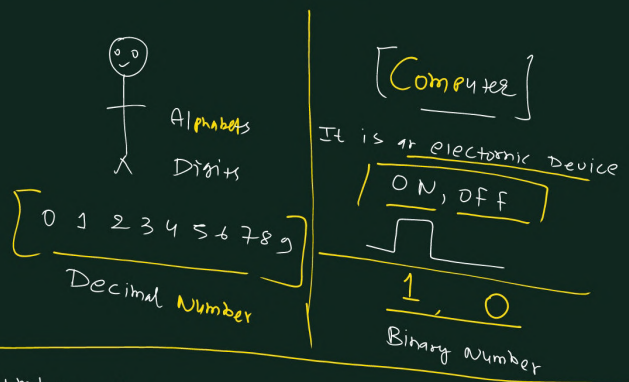 Alphabets
Digits
0 1 2 3 4 5 6 7 8 9
Decimal Number
[Computer]
It is an electornic Device
ON, OFF
1, 0
Binary Number